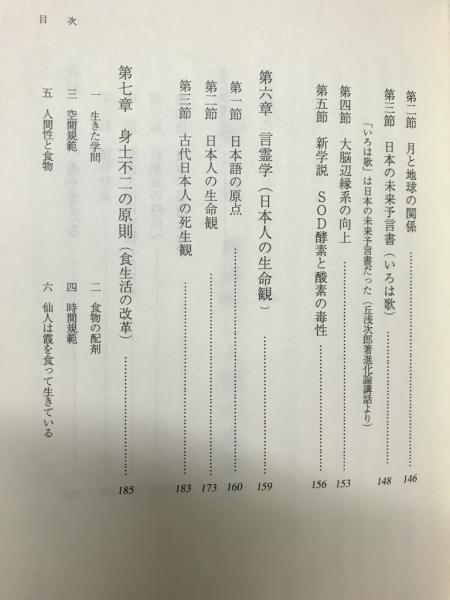 目次
第二節 月と地球の関係 146
第三節 日本の未来予言書（いろは歌） 148
「いろは歌」は日本の未来予言書だった（丘浅次郎著進化論講話より）
第四節 大脳辺縁系の向上 153
第五節 新学説 SOD酵素と酸素の毒性 156
第六章 言霊学（日本人の生命観） 159
第一節 日本語の原点 160
第二節 日本人の生命観 173
第三節 古代日本人の死生観 183
第七章 身土不二の原則（食生活の改革） 185
一 生きた学問 二 食物の配剤
三 空間規範 四 時間規範
五 人間性と食物 六 仙人は霞を食って生きている